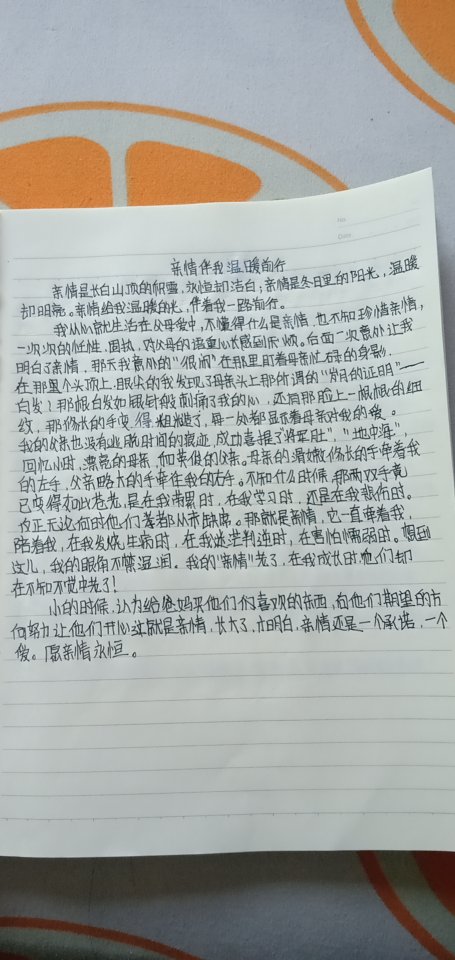 No.
Date.
亲情伴我温暖前行
亲情是长白山顶的积雪,永恒却洁白;亲情是冬日里的阳光,温暖
却明亮。亲情给我温暖的光,伴着我一路前行。
我从小就生活在父母爱中,不懂得什么是亲情,也不知珍惜亲情,
一次次的任性、固执,对父母的温柔以待感到厌烦。后面一次意外让我
明白了亲情,那天我意外的“很闲”在那里盯着母亲忙碌的身影,
在那里个头顶上,眼尖的我发现了母亲头上那所谓的“岁月的证明”——
白发!那根白发如银针般刺痛了我的心,还有那脸上一根根的细
纹,那修长的手变得粗糙了,每一处都显示着母亲对我的爱。
我的父亲也没有逃脱时间的痕迹,成功喜提了“将军肚”,“地中海”,
回忆小时,漂亮的母亲,和英俊的父亲。母亲的滑嫩修长的手牵着我
的左手,父亲略大的手牵住我的右手。不知什么时候,那两双手竟
已变得如此苍老,是在我带累时,在我学习时,还是在我悲伤时。
反正无论何时他们等着都从未缺席。那就是亲情,它一直牵着我,
陪着我,在我发烧生病时,在我迷茫判逆时,在害怕懦弱时。想到
这儿,我的眼角不禁湿润。我的“亲情”老了,在我成长时,他们却
在不知不觉中老了!
小的时候,认为给爸妈买他们们喜欢的东西,向他们期望的方
向努力让他们开心这就是亲情,长大了,才明白,亲情还是一个承诺,一个
爱。愿亲情永恒。